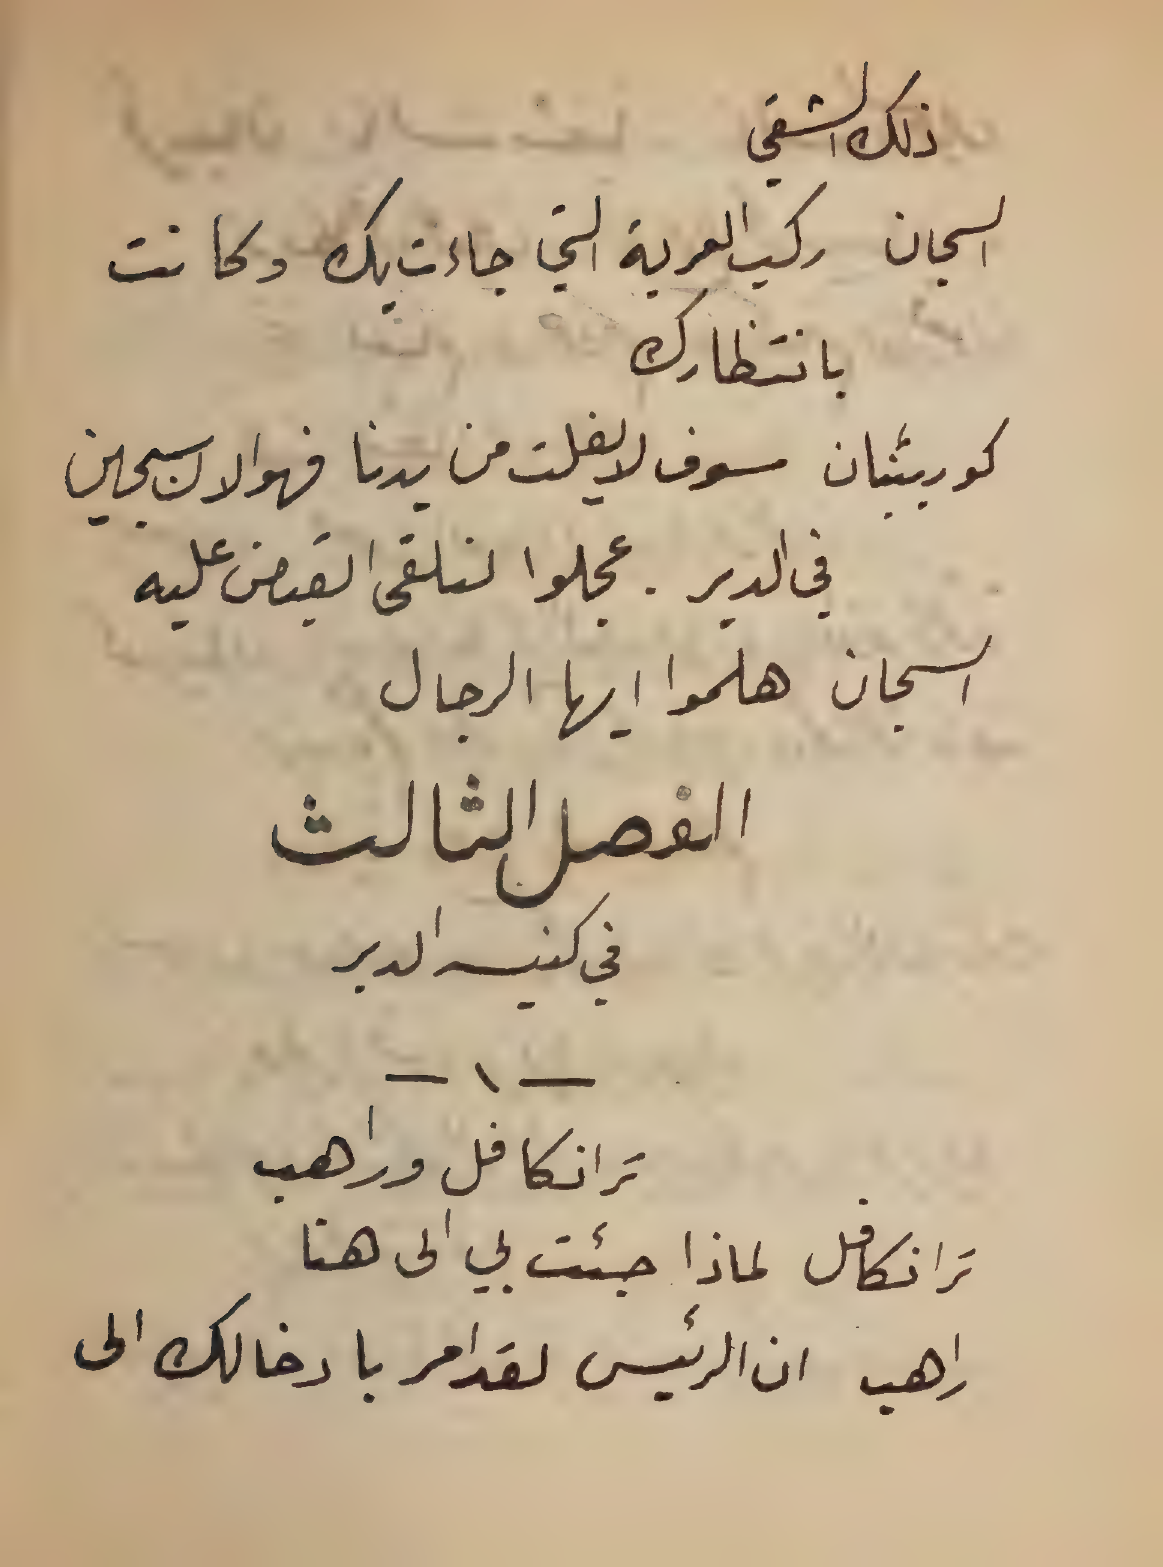 ذلك الشقي
السجان ركب العربة التي جاءت بك وكانت
بانتظارك
كوريئنان سوف لا يفلت من يدنا فهو الان سجين
في الدير . عجلوا لنلقى القبض عليه
السجان هلموا ايها الرجال
الفصل الثالث
في كنيسه الدير
— ١ —
ترانكافل وراهب
ترانكافل لماذا جئت بي الى هنا
راهب ان الرئيس لقد امر بادخالك الى